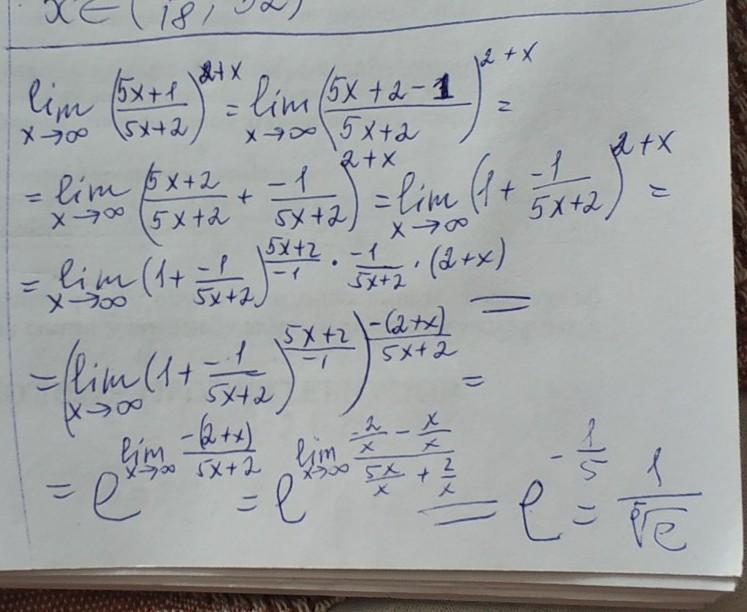 x ∈ (18; 32)
lim x→∞ ((5x+1)/(5x+2))^(2+x) = lim x→∞ ((5x+2-1)/(5x+2))^(2+x) =
= lim x→∞ ((5x+2)/(5x+2) + (-1)/(5x+2))^(2+x) = lim x→∞ (1 + (-1)/(5x+2))^(2+x) =
= lim x→∞ (1 + (-1)/(5x+2))^((5x+2)/(-1) · (-1)/(5x+2) · (2+x)) =
= (lim x→∞ (1 + (-1)/(5x+2))^((5x+2)/(-1)))^(-(2+x)/(5x+2)) =
= e^(lim x→∞ (-(2+x))/(5x+2)) = e^(lim x→∞ (-2/x - x/x)/(5x/x + 2/x)) = e^(-1/5) = 1/⁵√e